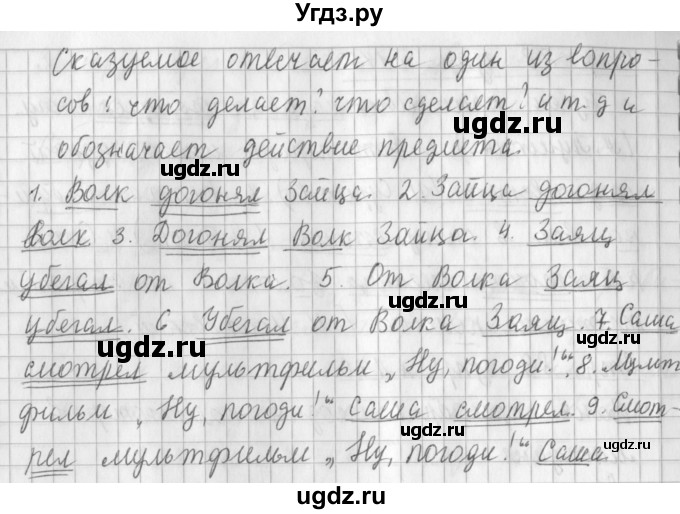 Угдз.ру
Сказуемое отвечает на один из вопро-
сов: что делает? что сделает? и т. д и
ugdz.ru
обозначает действие предмета.
ugdz.ru
ugdz.ru
1. Волк догонял Зайца. 2. Зайца догонял
Волк 3. Догонял Волк Зайца. 4. Заяц
убегал от Волка. 5. От Волка Заяц
ugdz.ru
убегал. 6 Убегал от Волка Заяц. 7. Саша
ugdz.ru
смотрел мультфильм „Ну, погоди!“. 8. Мульт
фильм „Ну, погоди!“ Саша смотрел. 9. Смот-
ugdz.ru
ugdz.ru
рел мультфильм „Ну, погоди!“ Саша.
ugdz.ru